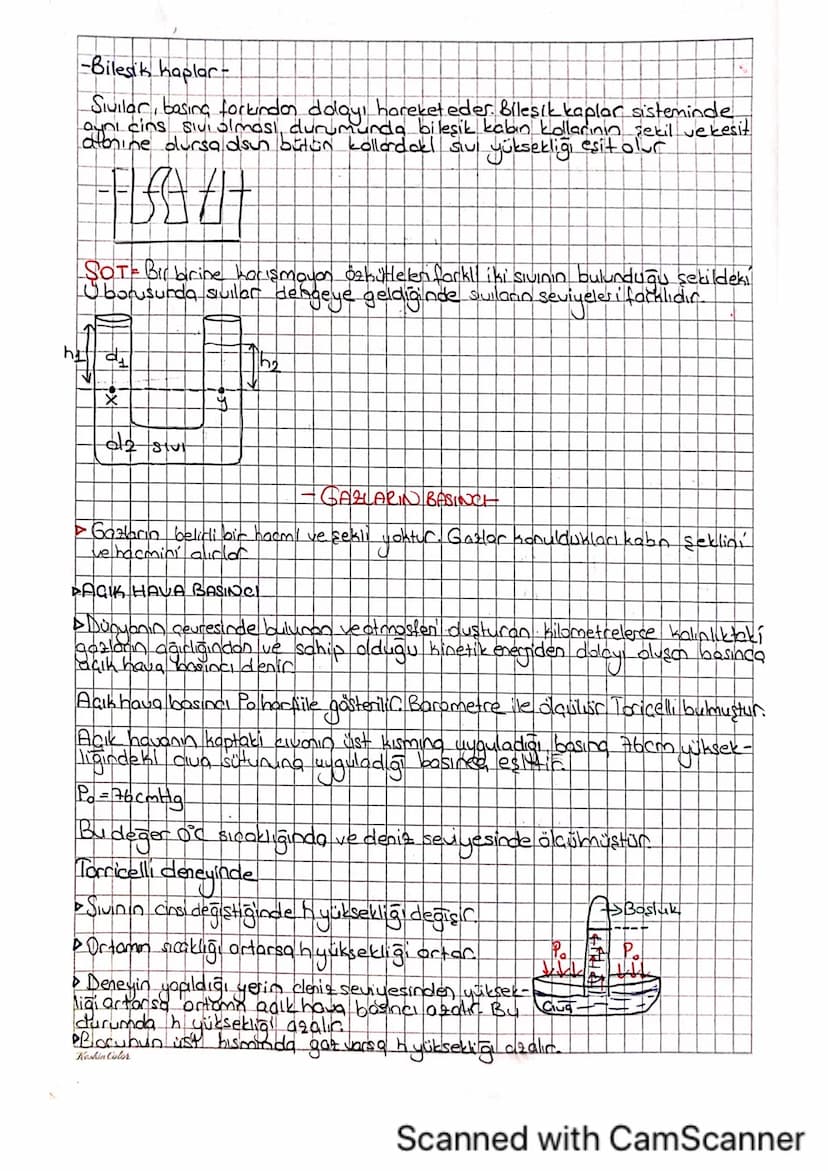 -Bileşik kaplar-
Sıvılar, basınç farkından dolayı hareket eder. Bileşik kaplar sisteminde
aynı cins sıvı olması durumunda bileşik kabın kollarının şekil ve kesit
olursa olsun bütün kollardaki sıvı yüksekliği eşit olur
Bir birine karışmayan özkütleleri farklı iki sıvının bulunduğu şekildeki
U borusunda sıvılar dengeye geldiğinde sıvıların seviyeleri farklıdır.
h1 d1 h2
x y
d2 sıvı
-GAZLARIN BASINCI-
Gazların belirli bir hacmi ve şekli yoktur. Gazlar konuldukları kabın şeklini
ve hacmini alırlar
AÇIK HAVA BASINCI
Dünyanın çevresinde bulunan ve atmosferi oluşturan kilometrelerce kalınlıktaki
gazların ağırlığından ve sahip olduğu kinetik enerjiden dolayı oluşan basınca
açık hava basıncı denir
Açık hava basıncı Po harfi ile gösterilir. Barometre ile ölçülür Toricelli bulmuştur.
Açık havanın kaptaki civanın üst kısmına uyguladığı basınç 76cm yüksek-
liğindeki civa sütununa uyguladığı basınca eşittir.
Po=76cmHg
Bu değer 0°C sıcaklığında ve deniz seviyesinde ölçülmüştür.
Torricelli deneyinde
Sıvının cinsi değiştiğinde h yüksekliği değişir.
Boşluk
Ortamın sıcaklığı artarsa h yüksekliği artar.
Po Po
Deneyin yapıldığı yerin deniz seviyesinden yüksek-
liği artarsa ortamın açık hava basıncı azalır. Bu
Civa
durumda h yüksekliği azalır.
Borunun üst kısmında gaz varsa h yüksekliği azalır.
Keskin Color
Scanned with CamScanner